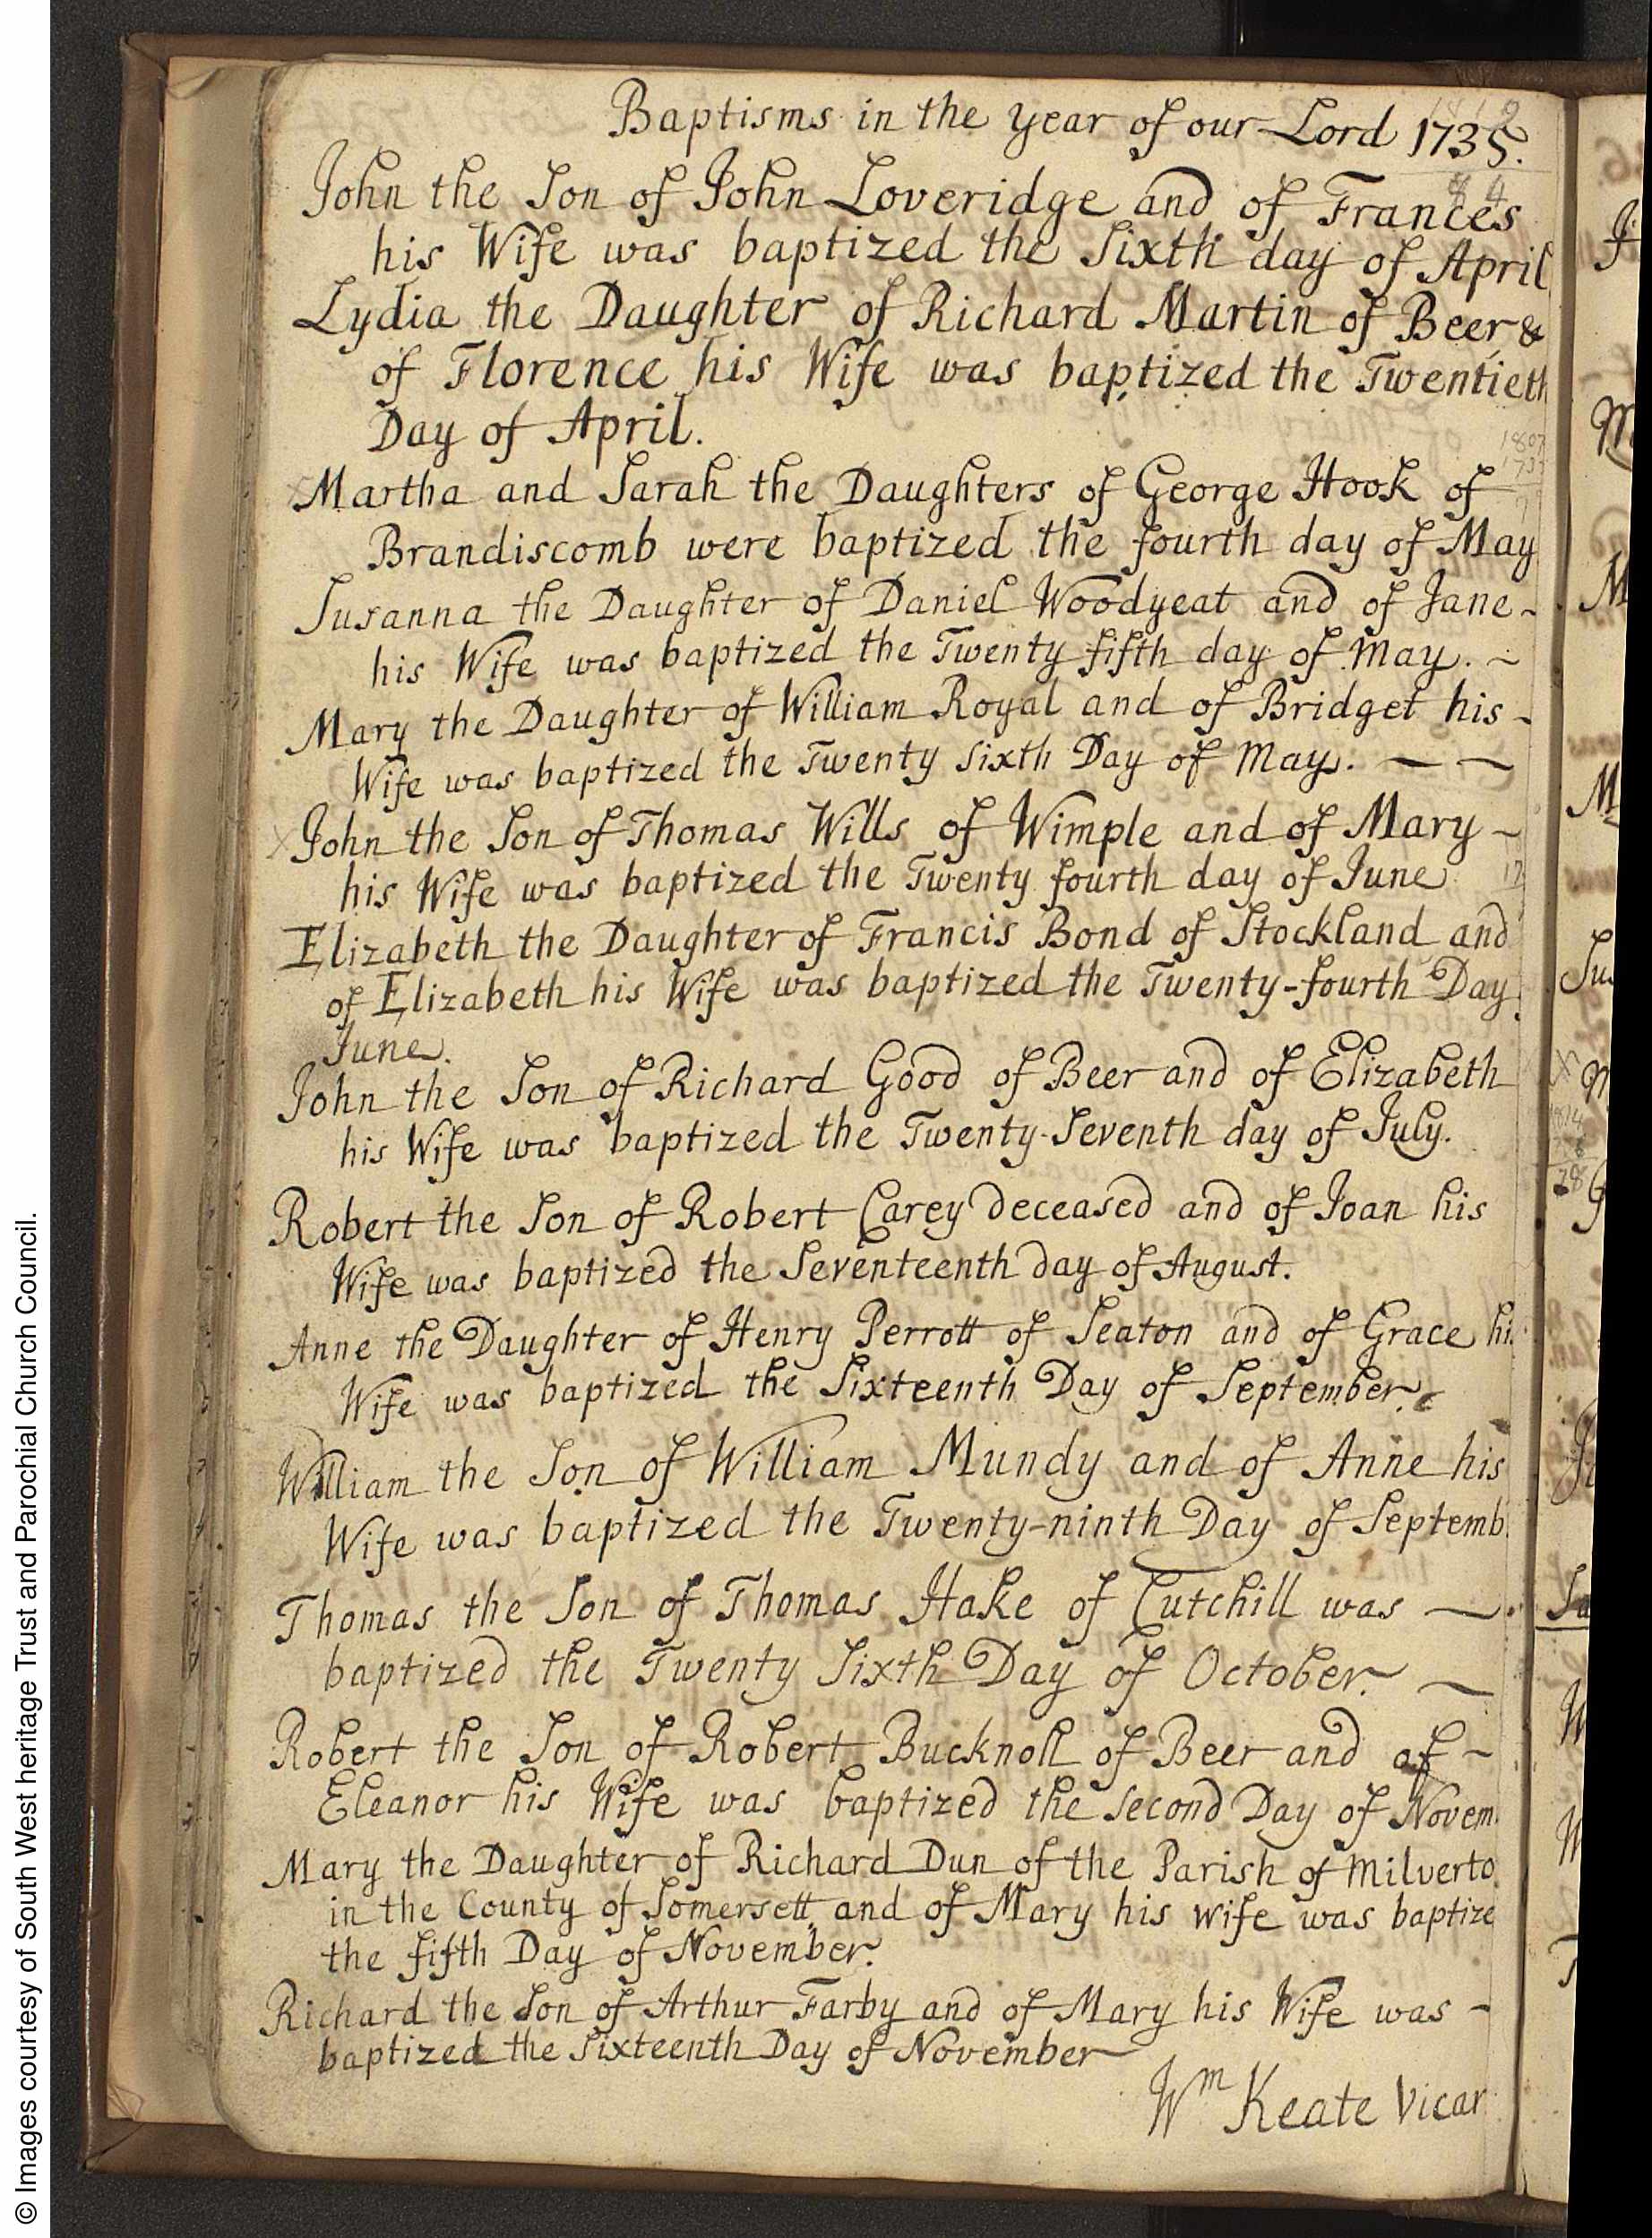 Baptisms in the year of our Lord 1735.
John the Son of John Loveridge and of Frances
his Wife was baptized the Sixth day of April
Lydia the Daughter of Richard Martin of Beer &
of Florence his Wife was baptized the Twentieth
Day of April.
Martha and Sarah the Daughters of George Hook of
Brandiscomb were baptized the fourth day of May
Susanna the Daughter of Daniel Woodyeat and of Jane
his Wife was baptized the Twenty fifth day of May.
Mary the Daughter of William Royal and of Bridget his
Wife was baptized the Twenty sixth Day of May.
John the Son of Thomas Wills of Wimple and of Mary
his Wife was baptized the Twenty fourth day of June
Elizabeth the Daughter of Francis Bond of Stockland and
of Elizabeth his Wife was baptized the Twenty-fourth Day
June.
John the Son of Richard Good of Beer and of Elizabeth
his Wife was baptized the Twenty-Seventh day of July.
Robert the Son of Robert Carey deceased and of Joan his
Wife was baptized the Seventeenth day of August.
Anne the Daughter of Henry Perrott of Seaton and of Grace hi
Wife was baptized the Sixteenth Day of September.
William the Son of William Mundy and of Anne his
Wife was baptized the Twenty-ninth Day of Septemb
Thomas the Son of Thomas Hake of Cutchill was
baptized the Twenty Sixth Day of October.
Robert the Son of Robert Bucknoll of Beer and of
Eleanor his Wife was baptized the Second Day of Novem
Mary the Daughter of Richard Dun of the Parish of Milverto
in the County of Somersett and of Mary his wife was baptize
the fifth Day of November.
Richard the Son of Arthur Farby and of Mary his Wife was
baptized the Sixteenth Day of November
Wm Keate Vicar
© Images courtesy of South West heritage Trust and Parochial Church Council.